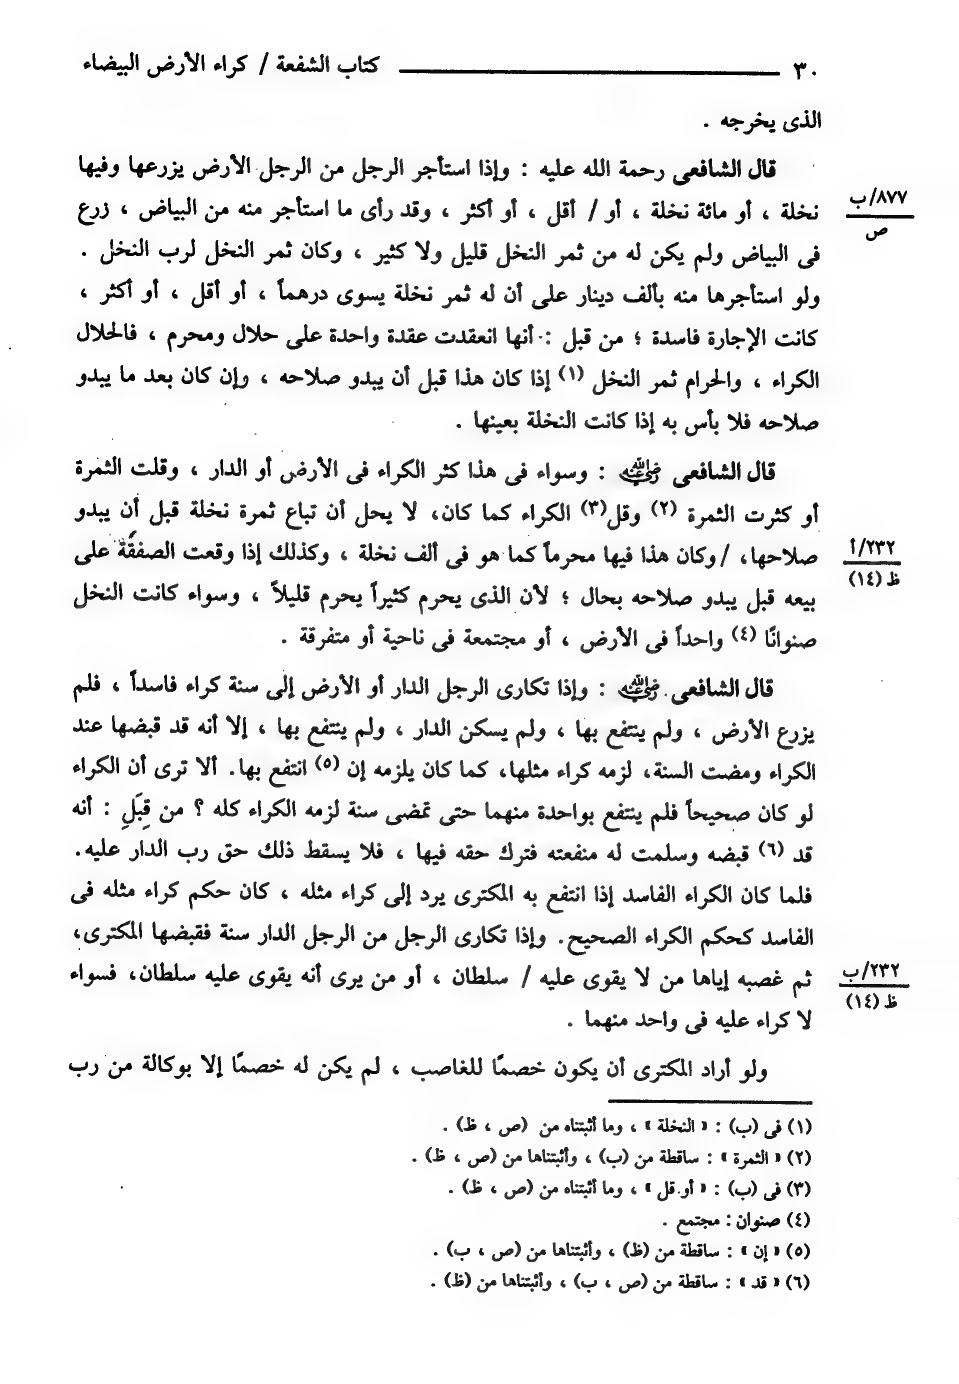 ٣٠ كتاب الشفعة / كراء الأرض البيضاء
الذى يخرجه .
قال الشافعى رحمة الله عليه : وإذا استأجر الرجل من الرجل الأرض يزرعها وفيها
٨٧٧/ب
ص
نخلة ، أو مائة نخلة ، أو / أقل ، أو أكثر ، وقد رأى ما استأجر منه من البياض ، زرع
فى البياض ولم يكن له من ثمر النخل قليل ولا كثير ، وكان ثمر النخل لرب النخل .
ولو استأجرها منه بألف دينار على أن له ثمر نخلة يسوى درهماً ، أو أقل ، أو أكثر ،
كانت الإجارة فاسدة ؛ من قبل : أنها انعقدت عقدة واحدة على حلال ومحرم ، فالحلال
الكراء ، والحرام ثمر النخل (١) إذا كان هذا قبل أن يبدو صلاحه ، وإن كان بعد ما يبدو
صلاحه فلا بأس به إذا كانت النخلة بعينها .
قال الشافعى رضي الله عنه : وسواء فى هذا كثر الكراء فى الأرض أو الدار ، وقلت الثمرة
أو كثرت الثمرة (٢) وقل(٣) الكراء كما كان، لا يحل أن تباع ثمرة نخلة قبل أن يبدو
٢٣٢/أ
ظ (١٤)
صلاحها، / وكان هذا فيها محرماً كما هو فى ألف نخلة ، وكذلك إذا وقعت الصفقة على
بيعه قبل يبدو صلاحه بحال ؛ لأن الذى يحرم كثيراً يحرم قليلاً ، وسواء كانت النخل
صنوانًا (٤) واحداً فى الأرض ، أو مجتمعة فى ناحية أو متفرقة .
قال الشافعى رضي الله عنه : وإذا تكارى الرجل الدار أو الأرض إلى سنة كراء فاسداً ، فلم
يزرع الأرض ، ولم ينتفع بها ، ولم يسكن الدار ، ولم ينتفع بها ، إلا أنه قد قبضها عند
الكراء ومضت السنة، لزمه كراء مثلها، كما كان يلزمه إن (٥) انتفع بها. ألا ترى أن الكراء
لو كان صحيحاً فلم ينتفع بواحدة منهما حتى تمضى سنة لزمه الكراء كله ؟ من قِبَلِ : أنه
قد (٦) قبضه وسلمت له منفعته فترك حقه فيها ، فلا يسقط ذلك حق رب الدار عليه.
فلما كان الكراء الفاسد إذا انتفع به المكترى يرد إلى كراء مثله ، كان حكم كراء مثله فى
الفاسد كحكم الكراء الصحيح. وإذا تكارى الرجل من الرجل الدار سنة فقبضها المكترى،
٢٣٢/ب
ظ (١٤)
ثم غصبه إياها من لا يقوى عليه / سلطان ، أو من يرى أنه يقوى عليه سلطان، فسواء
لا كراء عليه فى واحد منهما .
ولو أراد المكترى أن يكون خصمًا للغاصب ، لم يكن له خصمًا إلا بوكالة من رب
(١) فى (ب) : « النخلة » ، وما أثبتناه من (ص ، ظ) .
(٢) « الثمرة » : ساقطة من (ب) ، وأثبتناها من (ص ، ظ) .
(٣) فى (ب) : « أو قل » ، وما أثبتناه من (ص ، ظ) .
(٤) صنوان : مجتمع .
(٥) « إن » : ساقطة من (ظ) ، وأثبتناها من (ص ، ب) .
(٦) « قد » : ساقطة من (ص ، ب) ، وأثبتناها من (ظ) .